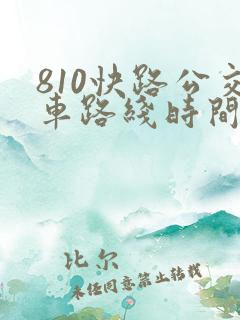 810快路公交
車路綫時間
比尔
未经同意禁止转载